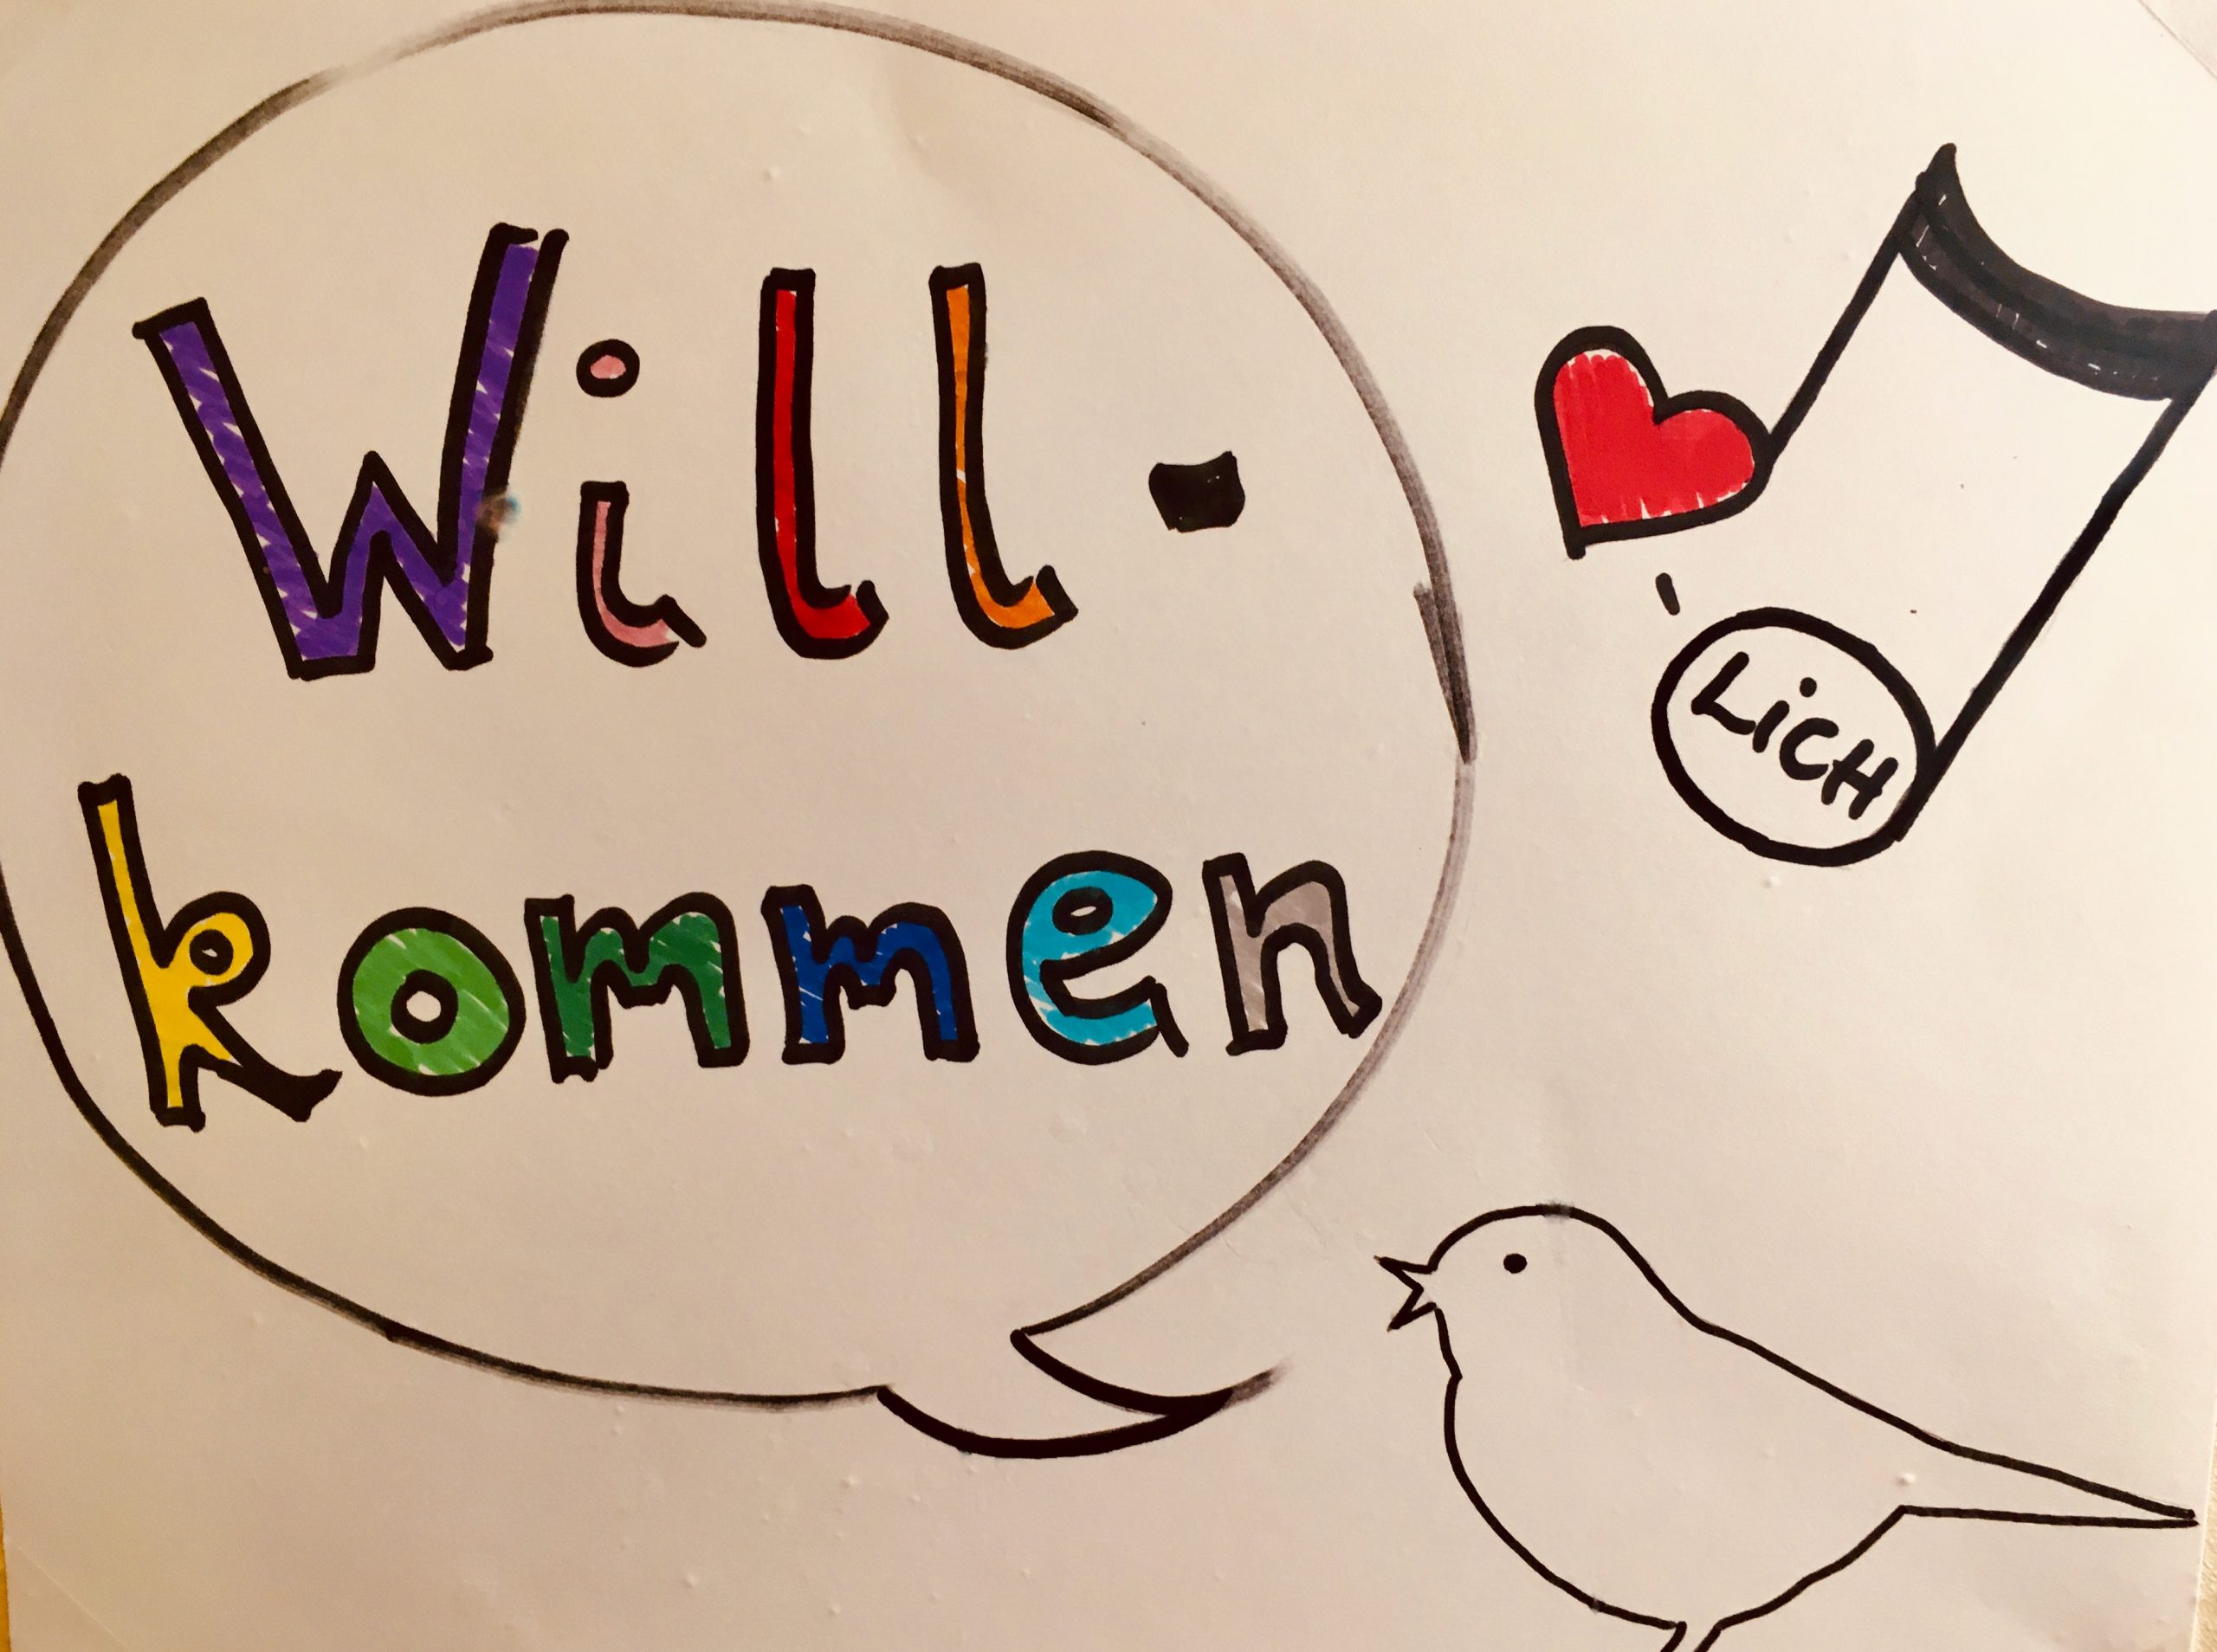 Will-
kommen
LiCH